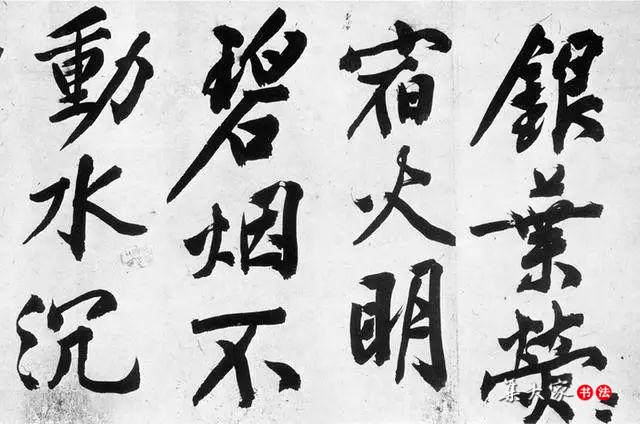 銀葉熒〻
宿火明
碧烟不
動水沉
集大家书法